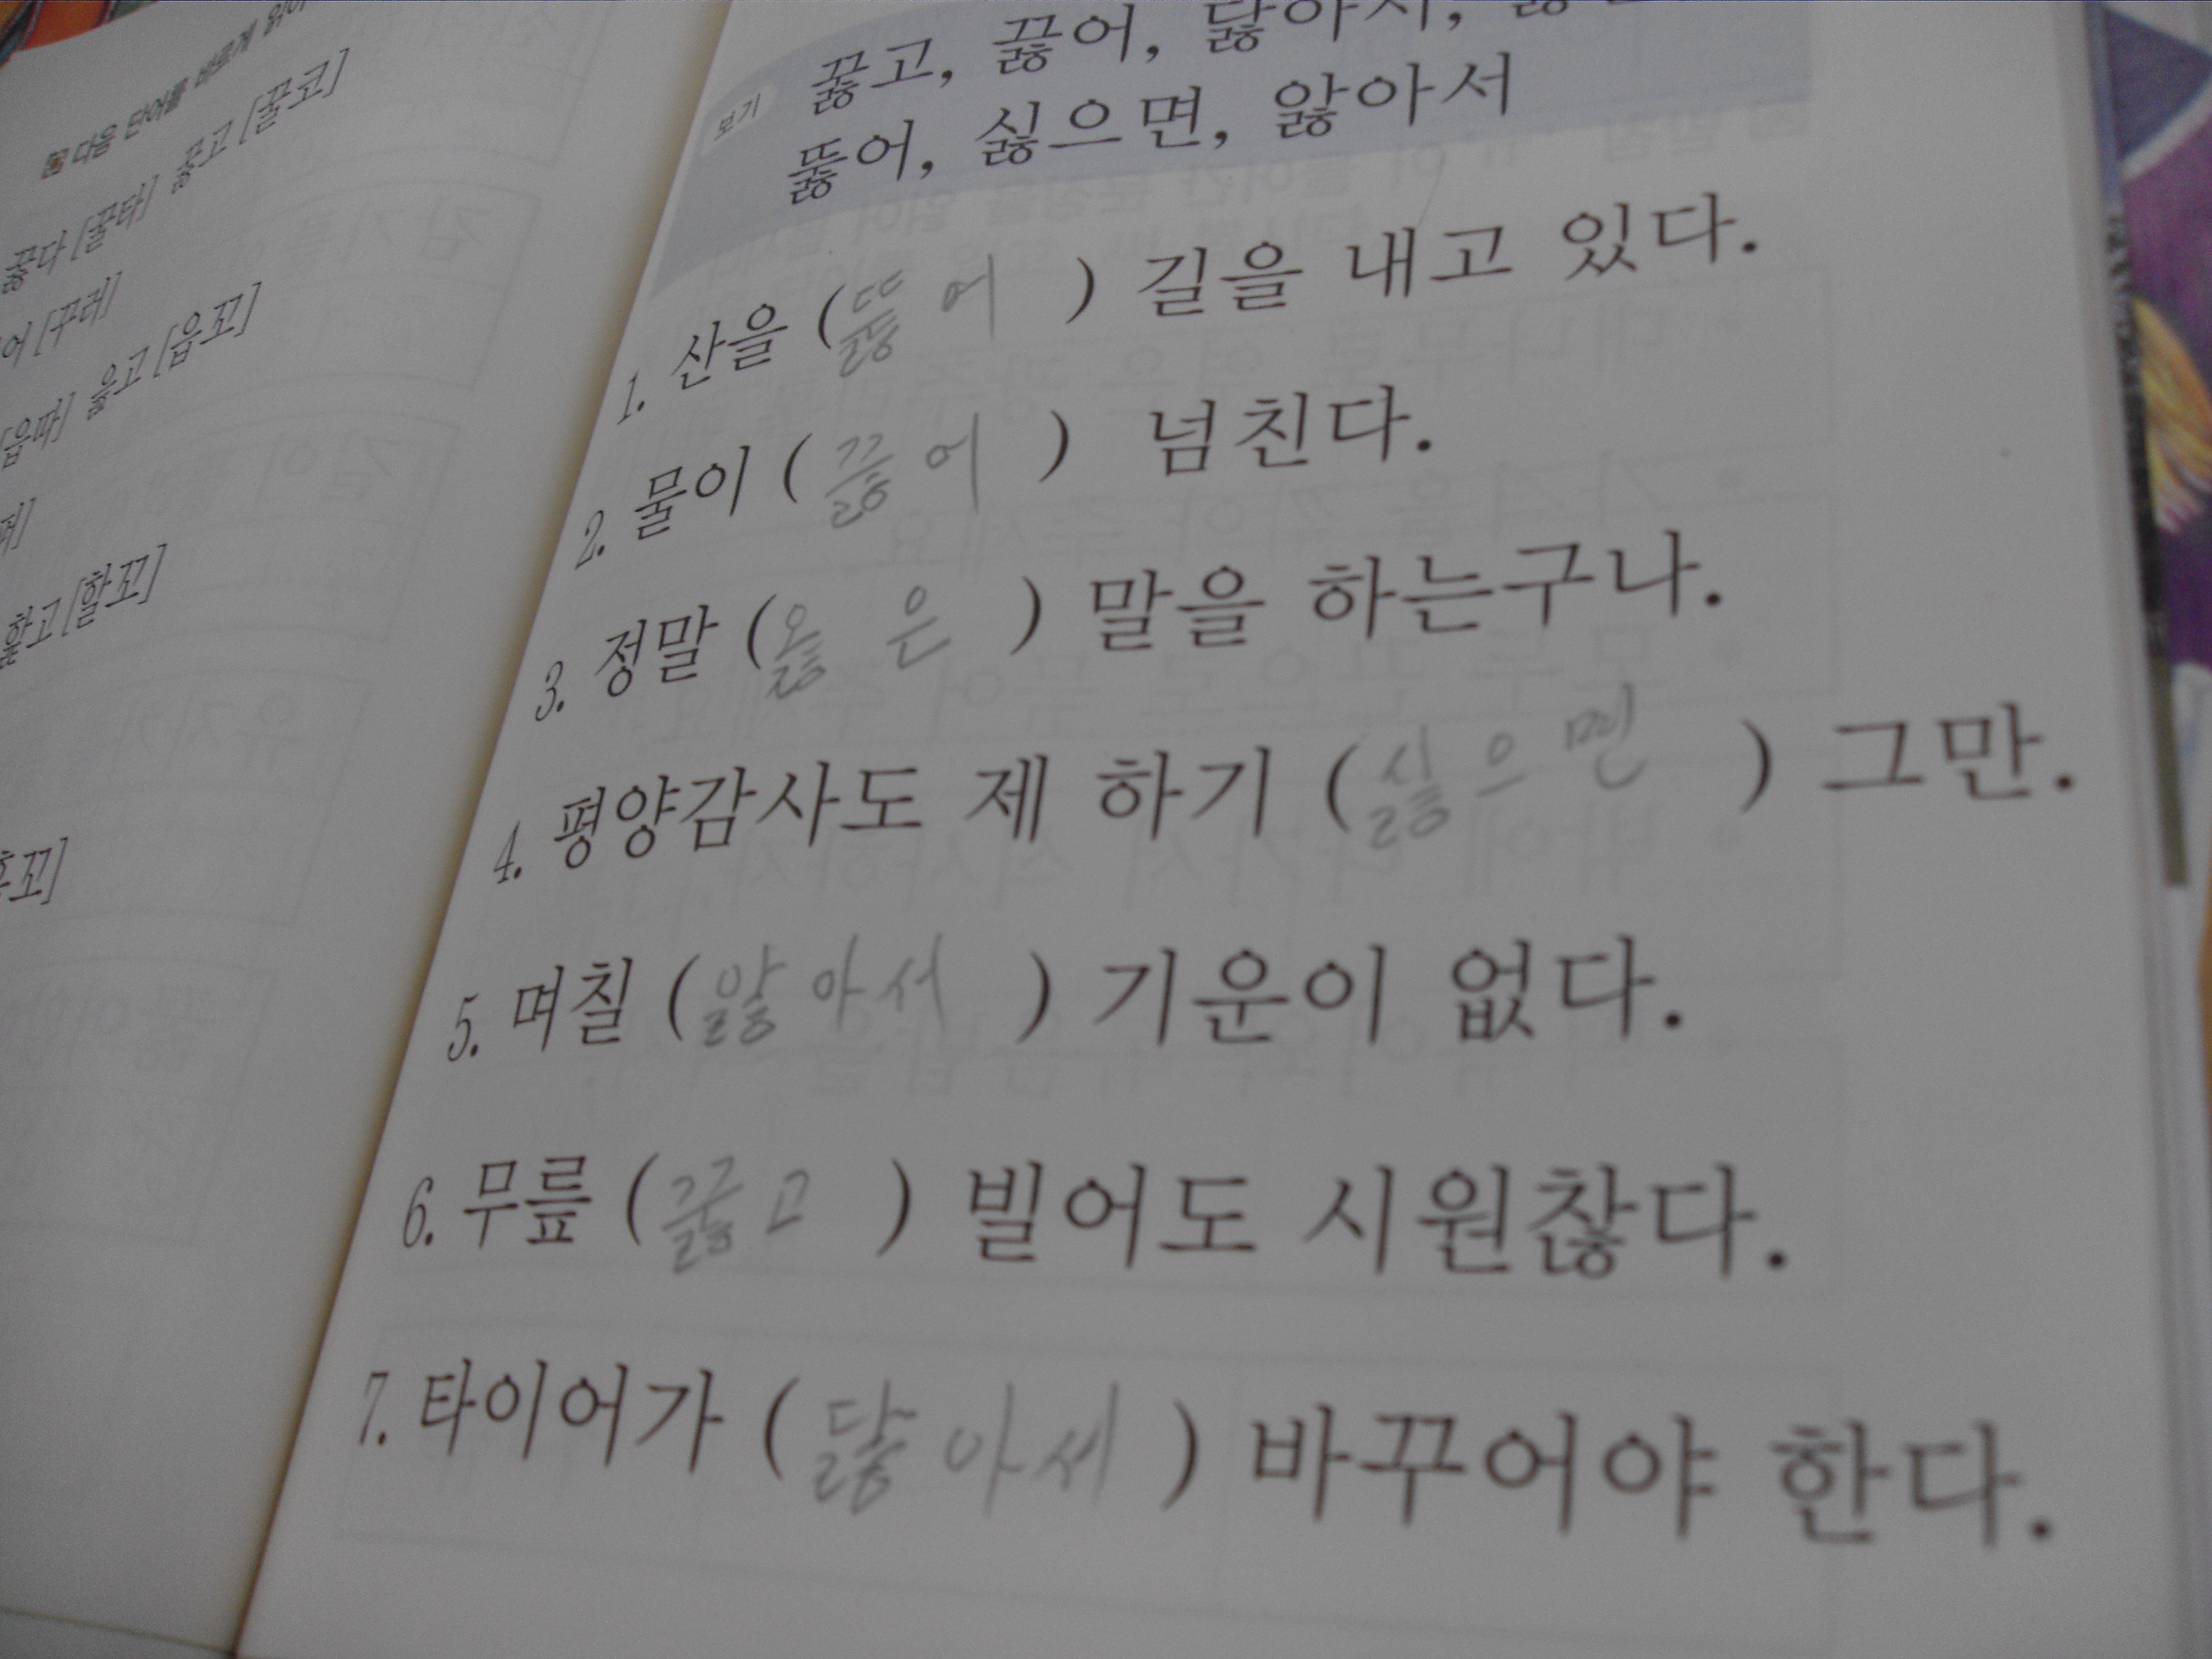 다음 단어를 바르게
꿇다 [꿀타] 꿇고 [꿀코]
[꾸러]
[읍따] 읊고 [읍꼬]
핥고 [할꼬]
보기
꿇고, 끓어, 닳아서,
뚫어, 싫으면, 앓아서
1. 산을 (뚫어) 길을 내고 있다.
2. 물이 (끓어) 넘친다.
3. 정말 (옳은) 말을 하는구나.
4. 평양감사도 제 하기 (싫으면) 그만.
5. 며칠 (앓아서) 기운이 없다.
6. 무릎 (꿇고) 빌어도 시원찮다.
7. 타이어가 (닳아서) 바꾸어야 한다.